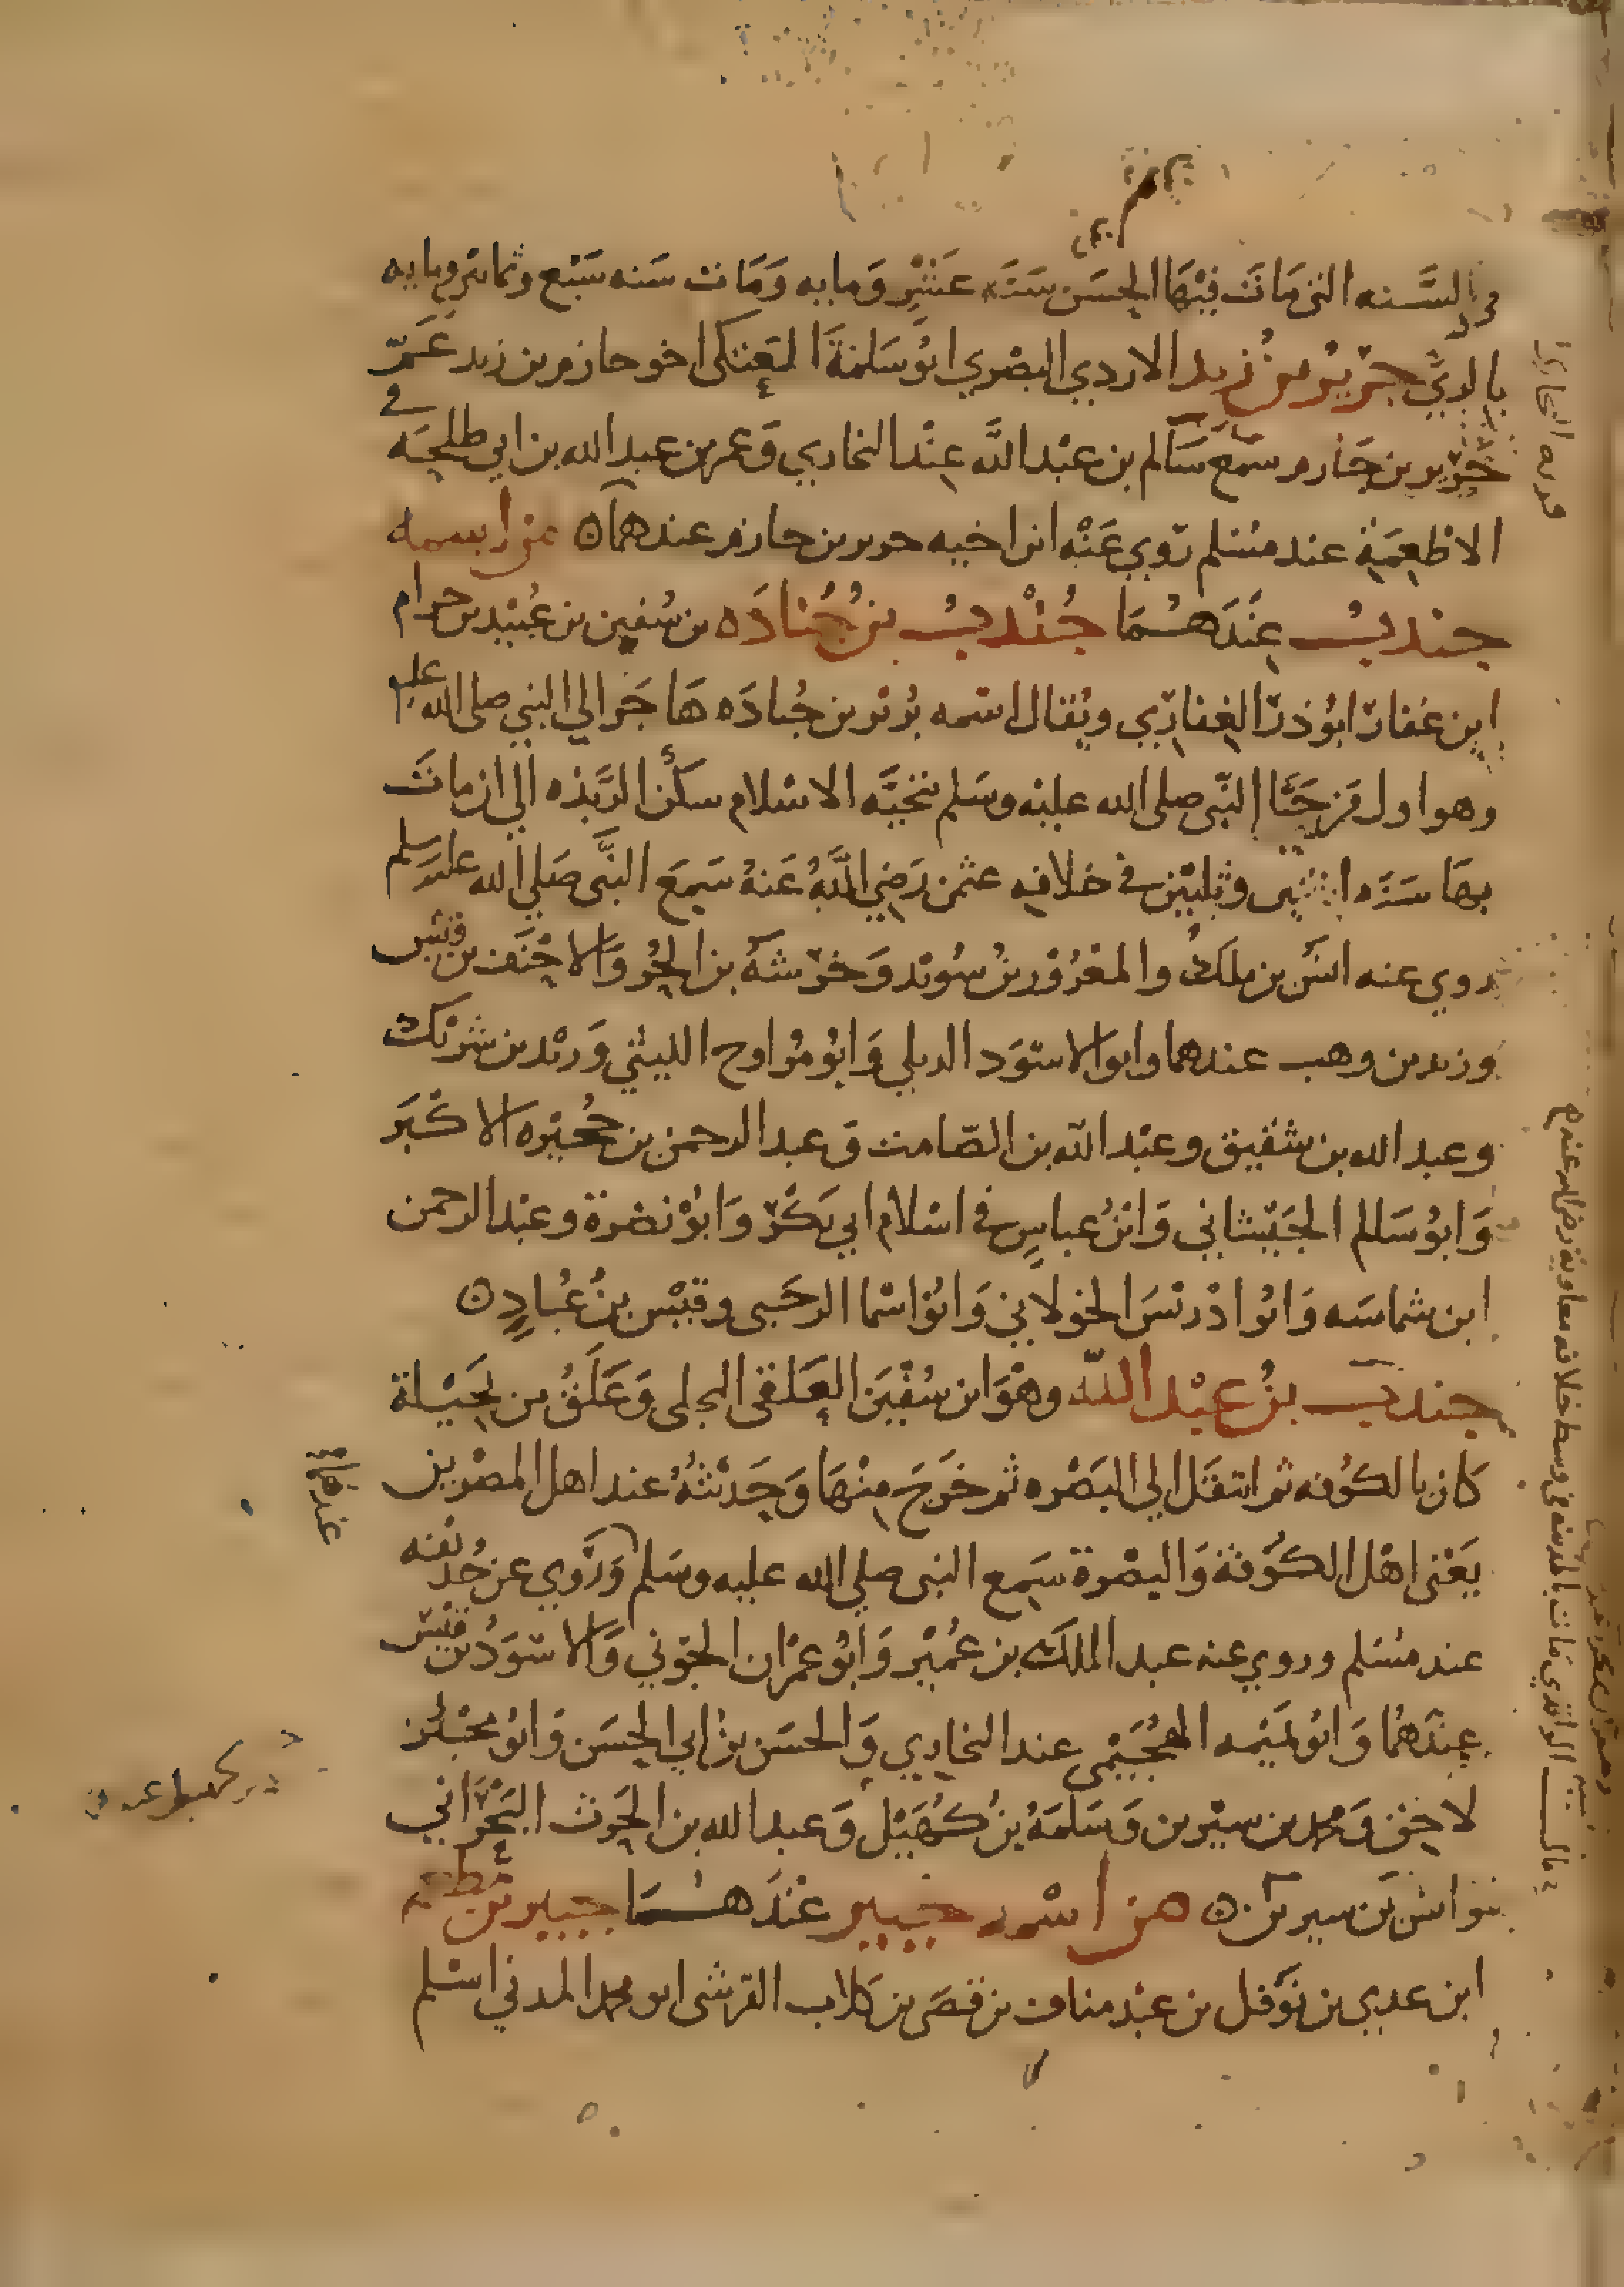 في السَّنه التي مَاتَ فيْهَا الحسَن سَنَه عَشْرٍ وَمايه وَمَات سَنه سَبْع وثمانين ومايه
بالريِّ جرَيْرُ بن زيد الازدي البصْري ابوُ سَلمَةَ العَتكى اخو حازم بن زيد عَمّ
جرَير بن حَازم سَمعَ سَالم بن عبْد اللَّه عنْد البخاري وَعمر بن عبد الله بن ابي طلحَه في
الاطْعِمَةِ عند مسْلم رَوي عَنْه ابن اخيه جرير بن حازم عندهما ۵ من اسمه
جندبُ عِنَدَهُمَا جُنْدبُ بنُ جُنادَه بن سُفين بن عُبَيْد بن حرام
ابن غفار ابوُ ذرّ الغِفاري ويُقال اسْمه بُرَيْر بن جُنادَه هَاجَر الي النبي صلى الله عليه
وهو اول مَن حَيَّا النَّبي صلى الله عليْه وسَلم بتحيَّه الاسْلام سكَن الرَّبَذه الي ان ماتَ
بهَا سَنَه اثنين وثلثيْن في خلافه عثمن رَضي اللَّهُ عَنهُ سَمِعَ النَّبي صَلي الله عليه وسلم
روي عنه انسَ بن ملك والمعْرُوْر بنُ سُويْد وَخرَشهَ بن الحُر وَالاحْنَف بن قيْس
وزيد بن وهب عندهما وابو الاسْوَد الديلي وَابُو مُراوح الليثي وَيزيْد بن شريْك
وعبد الله بن شقيق وعبْد الله بن الصّامت وَعبد الرحمن بن حُجَيْره الاكْبَر
وَابوُ سَالم الجَيْشاني وَابْنُ عباسٍ في اسْلام ابي بَكرَ وَابُوْ نضرة وعبْد الرحمن
ابن شماسَه وَابُو ادْريْسَ الخولاني وَابُوْ اسْما الرحَبي وقيْس بنُ عُبادٍ ۵
جندبَ بنُ عبْد اللّه وهْوَ ابن سُفْيَن العَلقى البجلي وَعَلَقُ من بَجيْلة
كان بالكوُفه ثم انتقَل الي البَصْره ثم خَرجَ منْهَا وَحَديثهُ عند اهل المصْرين
يَعْنى اهْل الكوُفة وَالبصْرة سَمِع النبي صلي الله عليه وسَلم وَرَوي عن حُذيْفه
عند مسْلم وروي عنه عبد الملك بن عُميْر وَابُو عمْران الجَوْني وَالاسْوَدُ بن قيْس
عِندهُمَا وَابُو تميْمه الهُجَيْمي عند البخاري وَالحسَن بن ابي الحسَن وَابُو مجْلز
لاحق وَمحمد بن سيْرين وَسَلمَهُ بنُ كُهَيْل وَعبد الله بن الحَرث النَجْرَاني
من اسْمه جبير عنْدَهُمَا جبير بن مطعم
ابن عدي بن نَوفل بن عبْد مناف بن قصَي بن كلاب القرشي ابو محمد المدني اسْلم
عندهما